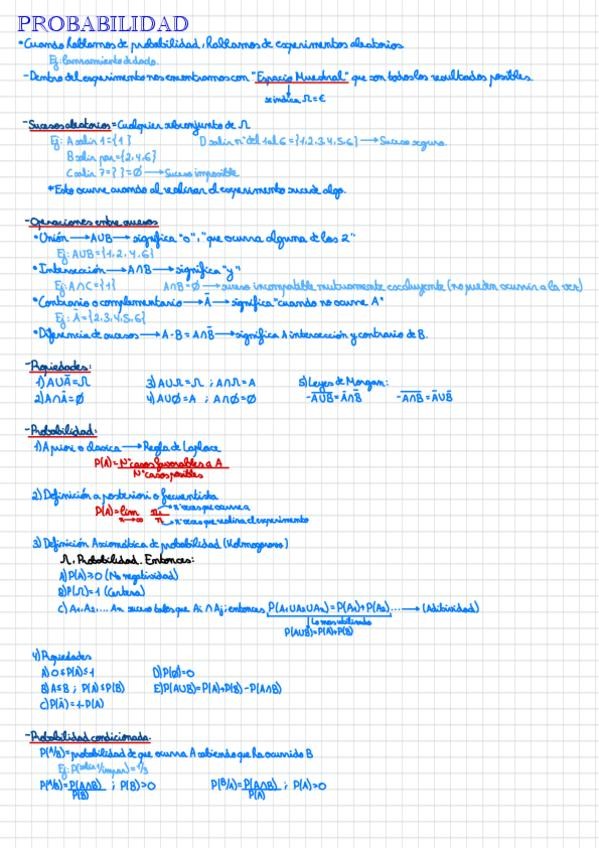 PROBABILIDAD
•Cuando hablamos de probabilidad, hablamos de experimentos aleatorios
Ej: lanzamiento de dado.
-Dentro del experimento nos encontramos con "Espacio Muestral" que son todos los resultados posibles.
se indica Ω=E
-Sucesos aleatorios=Cualquier subconjunto de Ω
Ej: A salir 1={1} D salir nº del 1 al 6={1,2,3,4,5,6}→Suceso seguro.
B salir par={2,4,6}
C salir 7={ }=Ø→Suceso imposible
*Esto ocurre cuando al realizar el experimento sucede algo.
-Operaciones entre sucesos
•Unión→A∪B→significa "o","que ocurra alguna de las 2"
Ej: A∪B={1,2,4,6}
•Intersección→A∩B→significa "y"
Ej: A∩C={1} A∩B=Ø→suceso incompatible mutuamente excluyente (no pueden ocurrir a la vez)
•Contrario o complementario→Ā→significa "cuando no ocurre A"
Ej: Ā={2,3,4,5,6}
•Diferencia de sucesos→A-B=A∩B̄→significa A intersección y contrario de B.
-Propiedades:
1)A∪Ā=Ω 3)A∪Ω=Ω ; A∩Ω=A 5)Leyes de Morgan:
2)A∩Ā=Ø 4)A∪Ø=A ; A∩Ø=Ø -A̅∪̅B̅=Ā∩B̄ -A̅∩̅B̅=Ā∪B̄
-Probabilidad:
1)A priori o clasica→Regla de Laplace
P(A)=Nº casos favorables a A
Nº casos posibles
2)Definición a posteriori o frecuentista
P(A)=lim n→∞ nᵢ/n
nº veces que ocurre a
nº veces que realiza el experimento
3)Definición Axiomática de probabilidad (Kolmogorov)
Ω, Probabilidad. Entonces:
A)P(A)≥0 (No negatividad)
B)P(Ω)=1 (Certeza)
C)A₁,A₂,... An suceso tales que Ai∩Aj; entonces P(A₁∪A₂∪An)=P(A₁)+P(A₂)....→(Aditividad)
Lo mas utilizado
P(A∪B)=P(A)+P(B)
4)Propiedades
A)0≤P(A)≤1 D)P(Ø)=0
B)A≤B ; P(A)≤P(B) E)P(A∪B)=P(A)+P(B)-P(A∩B)
C)P(Ā)=1-P(A)
-Probabilidad condicionada.
P(A/B)=probabilidad de que ocurra A sabiendo que ha ocurrido B
Ej: P(salir 1/impar)=1/3
P(A/B)=P(A∩B)/P(B) ; P(B)>0 P(B/A)=P(A∩B)/P(A) ; P(A)>0